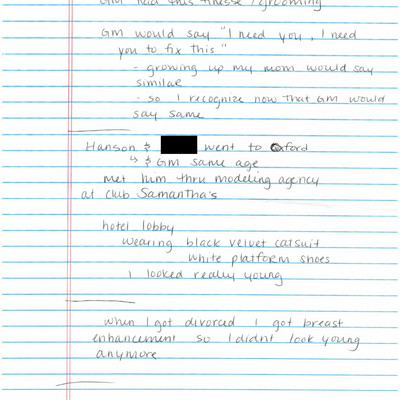 GM had this finesse / grooming
GM would say "I need you, I need
you to fix this"
- growing up my mom would say
similar
- so I recognize now that GM would
say same
Hanson & went to Oxford
↳ & GM same age
met him thru modeling agency
at club Samantha's
hotel lobby
wearing black velvet catsuit
white platform shoes
I looked really young
when I got divorced I got breast
enhancement so I didnt look young
anymore